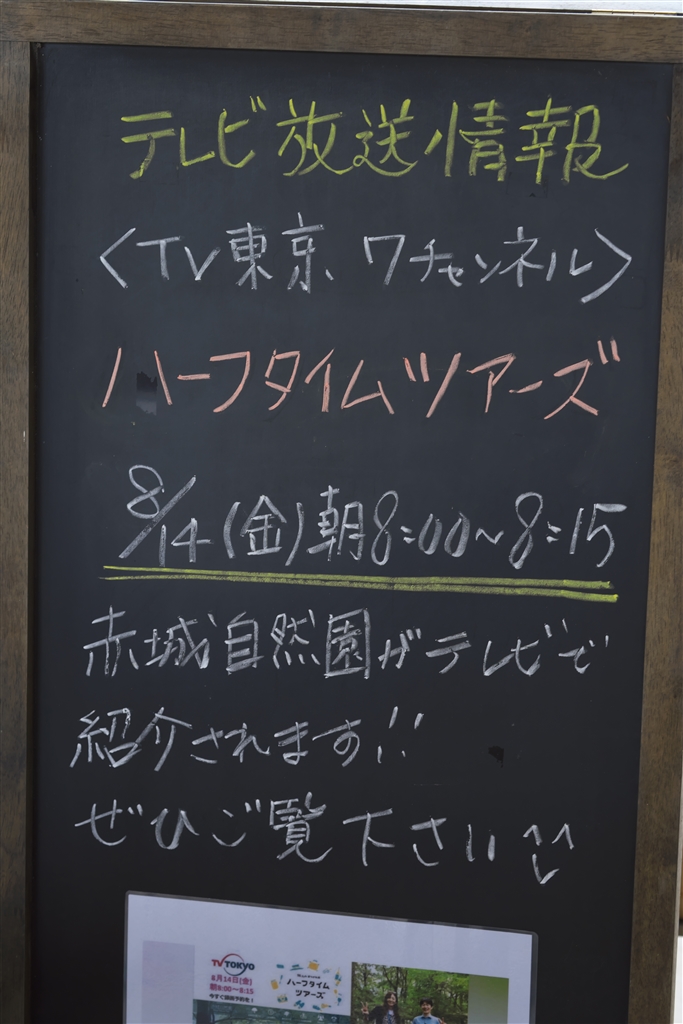 テレビ放送情報
〈TV東京 7チャンネル〉
ハーフタイムツアーズ
8/14(金)朝8:00~8:15
赤城自然園がテレビで
紹介されます!!
ぜひご覧下さい
TV TOKYO
8月14日(金)
朝8:00~8:15
今すぐ録画予約を!
ハーフタイム
ツアーズ